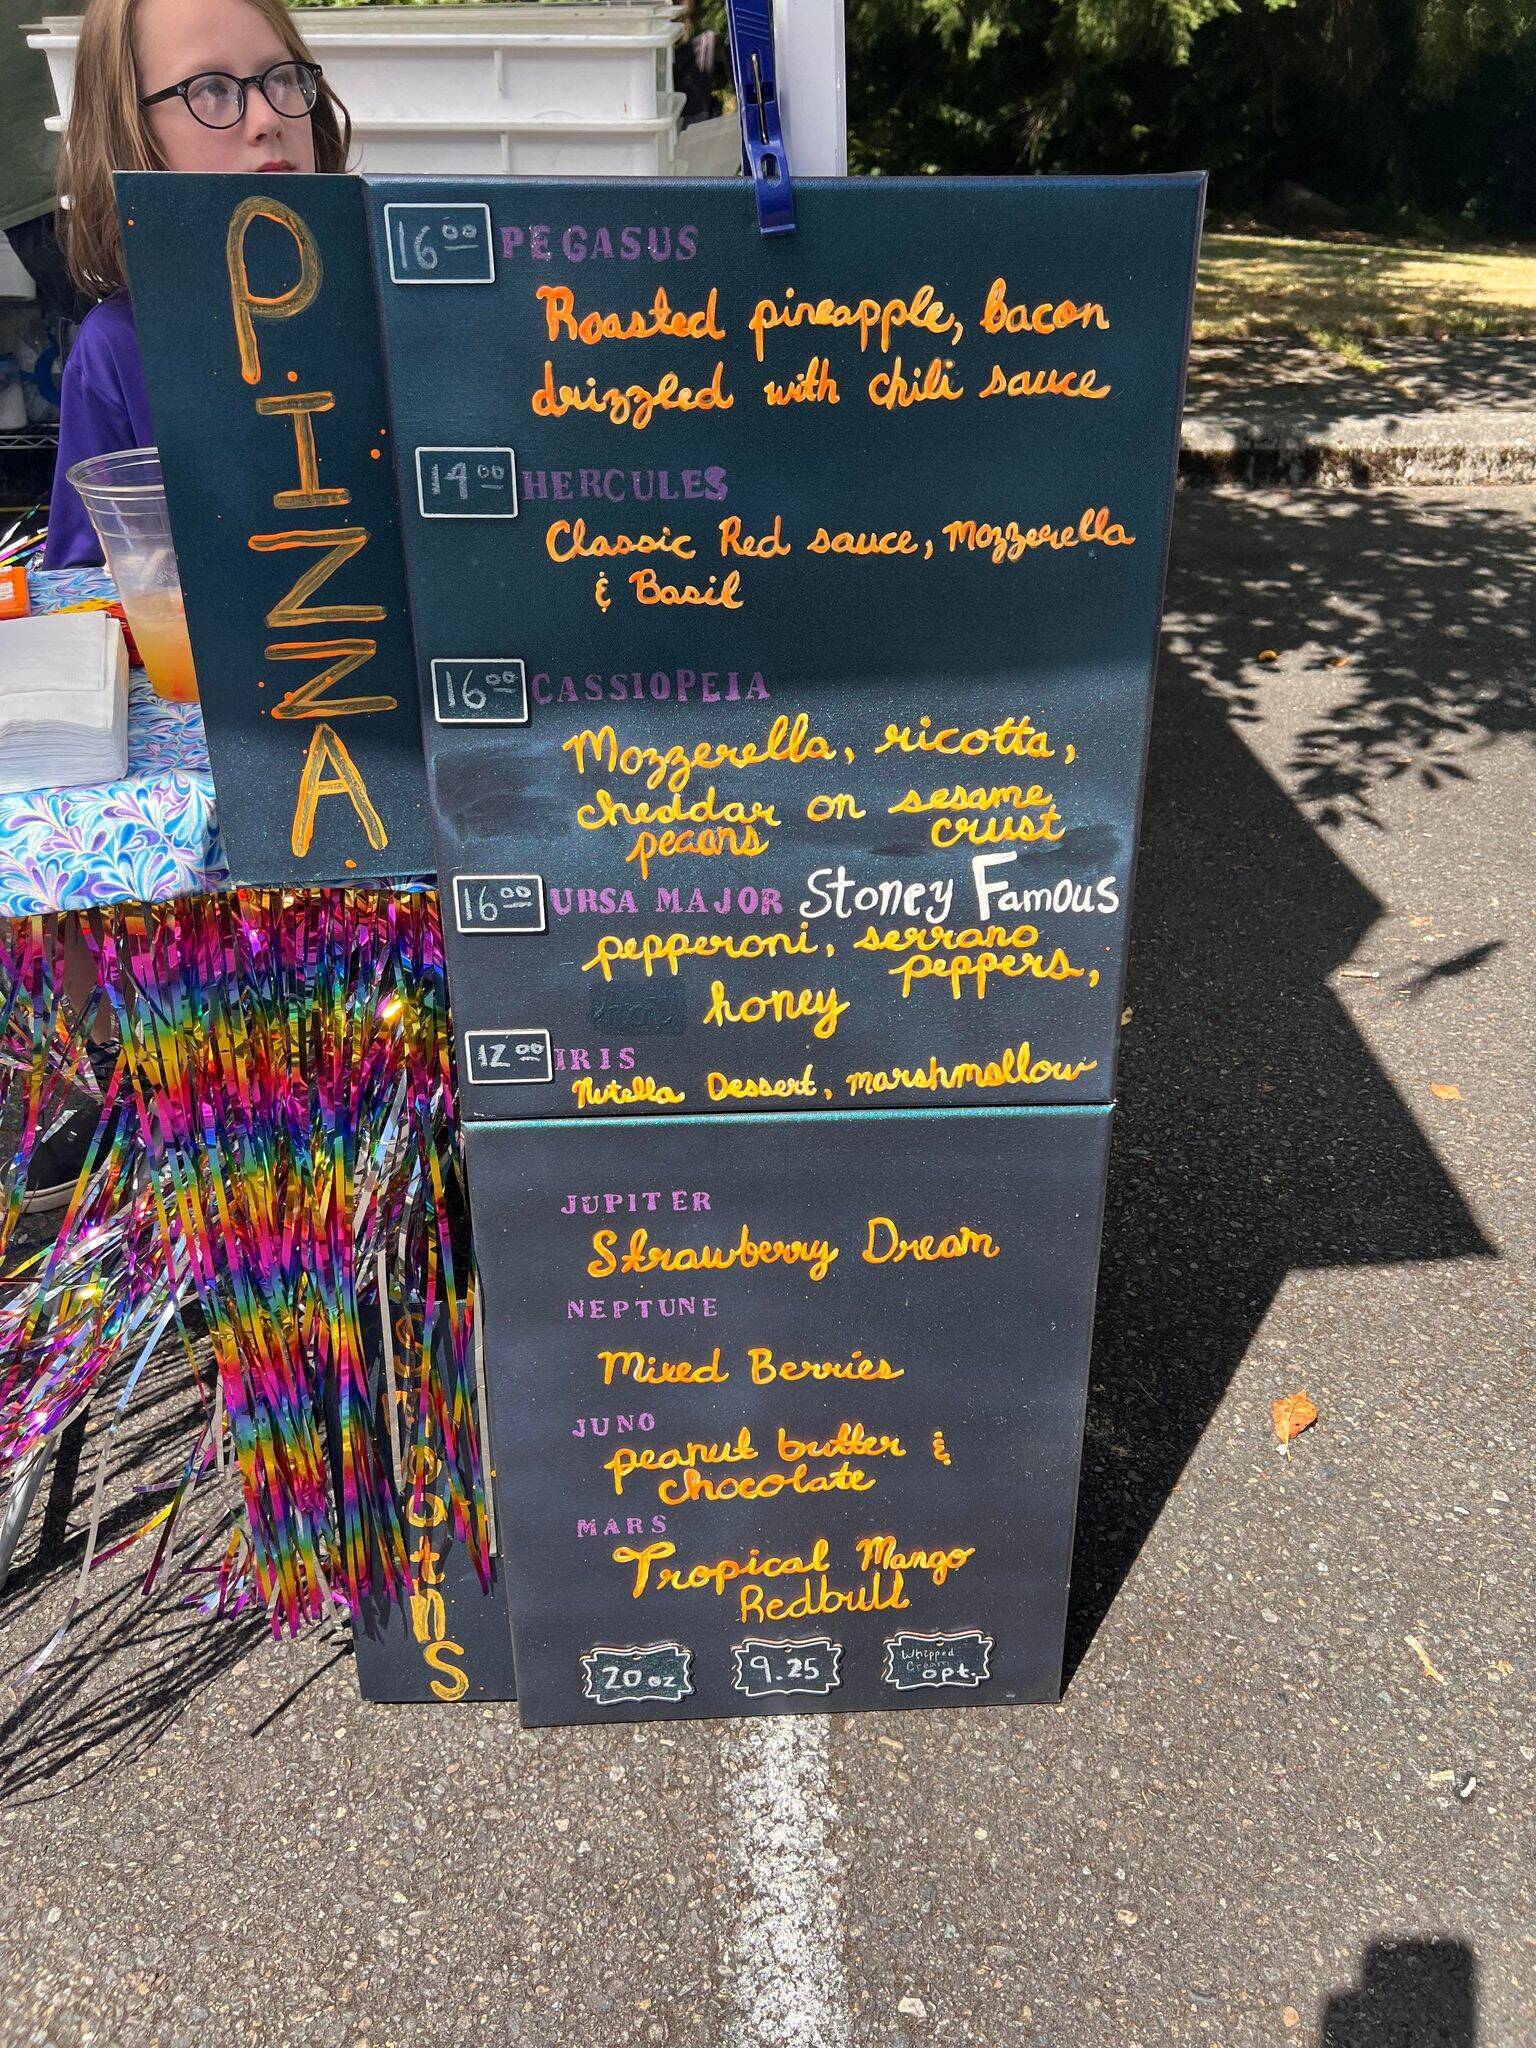 PIZZA
16.00 PEGASUS
Roasted pineapple, bacon
drizzled with chili sauce
14.00 HERCULES
Classic Red sauce, Mozzerella
& Basil
16.00 CASSIOPEIA
Mozzerella, ricotta,
cheddar on sesame
pecans crust
16.00 URSA MAJOR Stoney Famous
pepperoni, serrano
peppers,
honey
12.00 IRIS
Nutella Dessert, marshmallow
JUPITER
Strawberry Dream
NEPTUNE
Mixed Berries
JUNO
peanut butter &
chocolate
MARS
Tropical Mango
Redbull
20 oz
9.25
Whipped
Cream
opt.